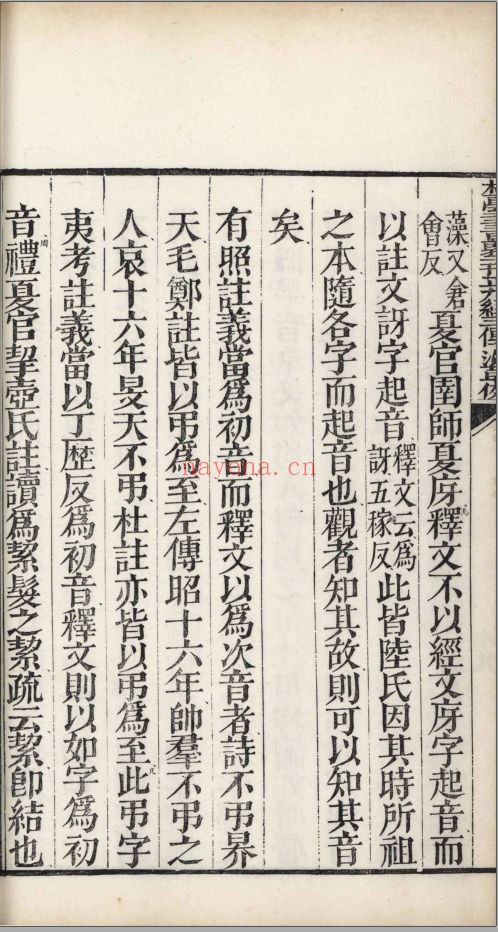 藻又倉會反夏官圉師夏庌釋文不以經文庌字起音而
以註文訝字起音釋文云爲訝五稼反此皆陸氏因其時所祖
之本隨各字而起音也觀者知其故則可以知其音
矣
有照註義當爲初音而釋文以爲次音者詩不弔昊
天毛鄭註皆以弔爲至左傳昭十六年帥羣不弔之
人哀十六年旻天不弔杜註亦皆以弔爲至此弔字
夷考註義當以丁歷反爲初音釋文則以如字爲初
音禮夏官挈壺氏註讀爲絜髮之絜疏云絜卽結也
nayona.cn